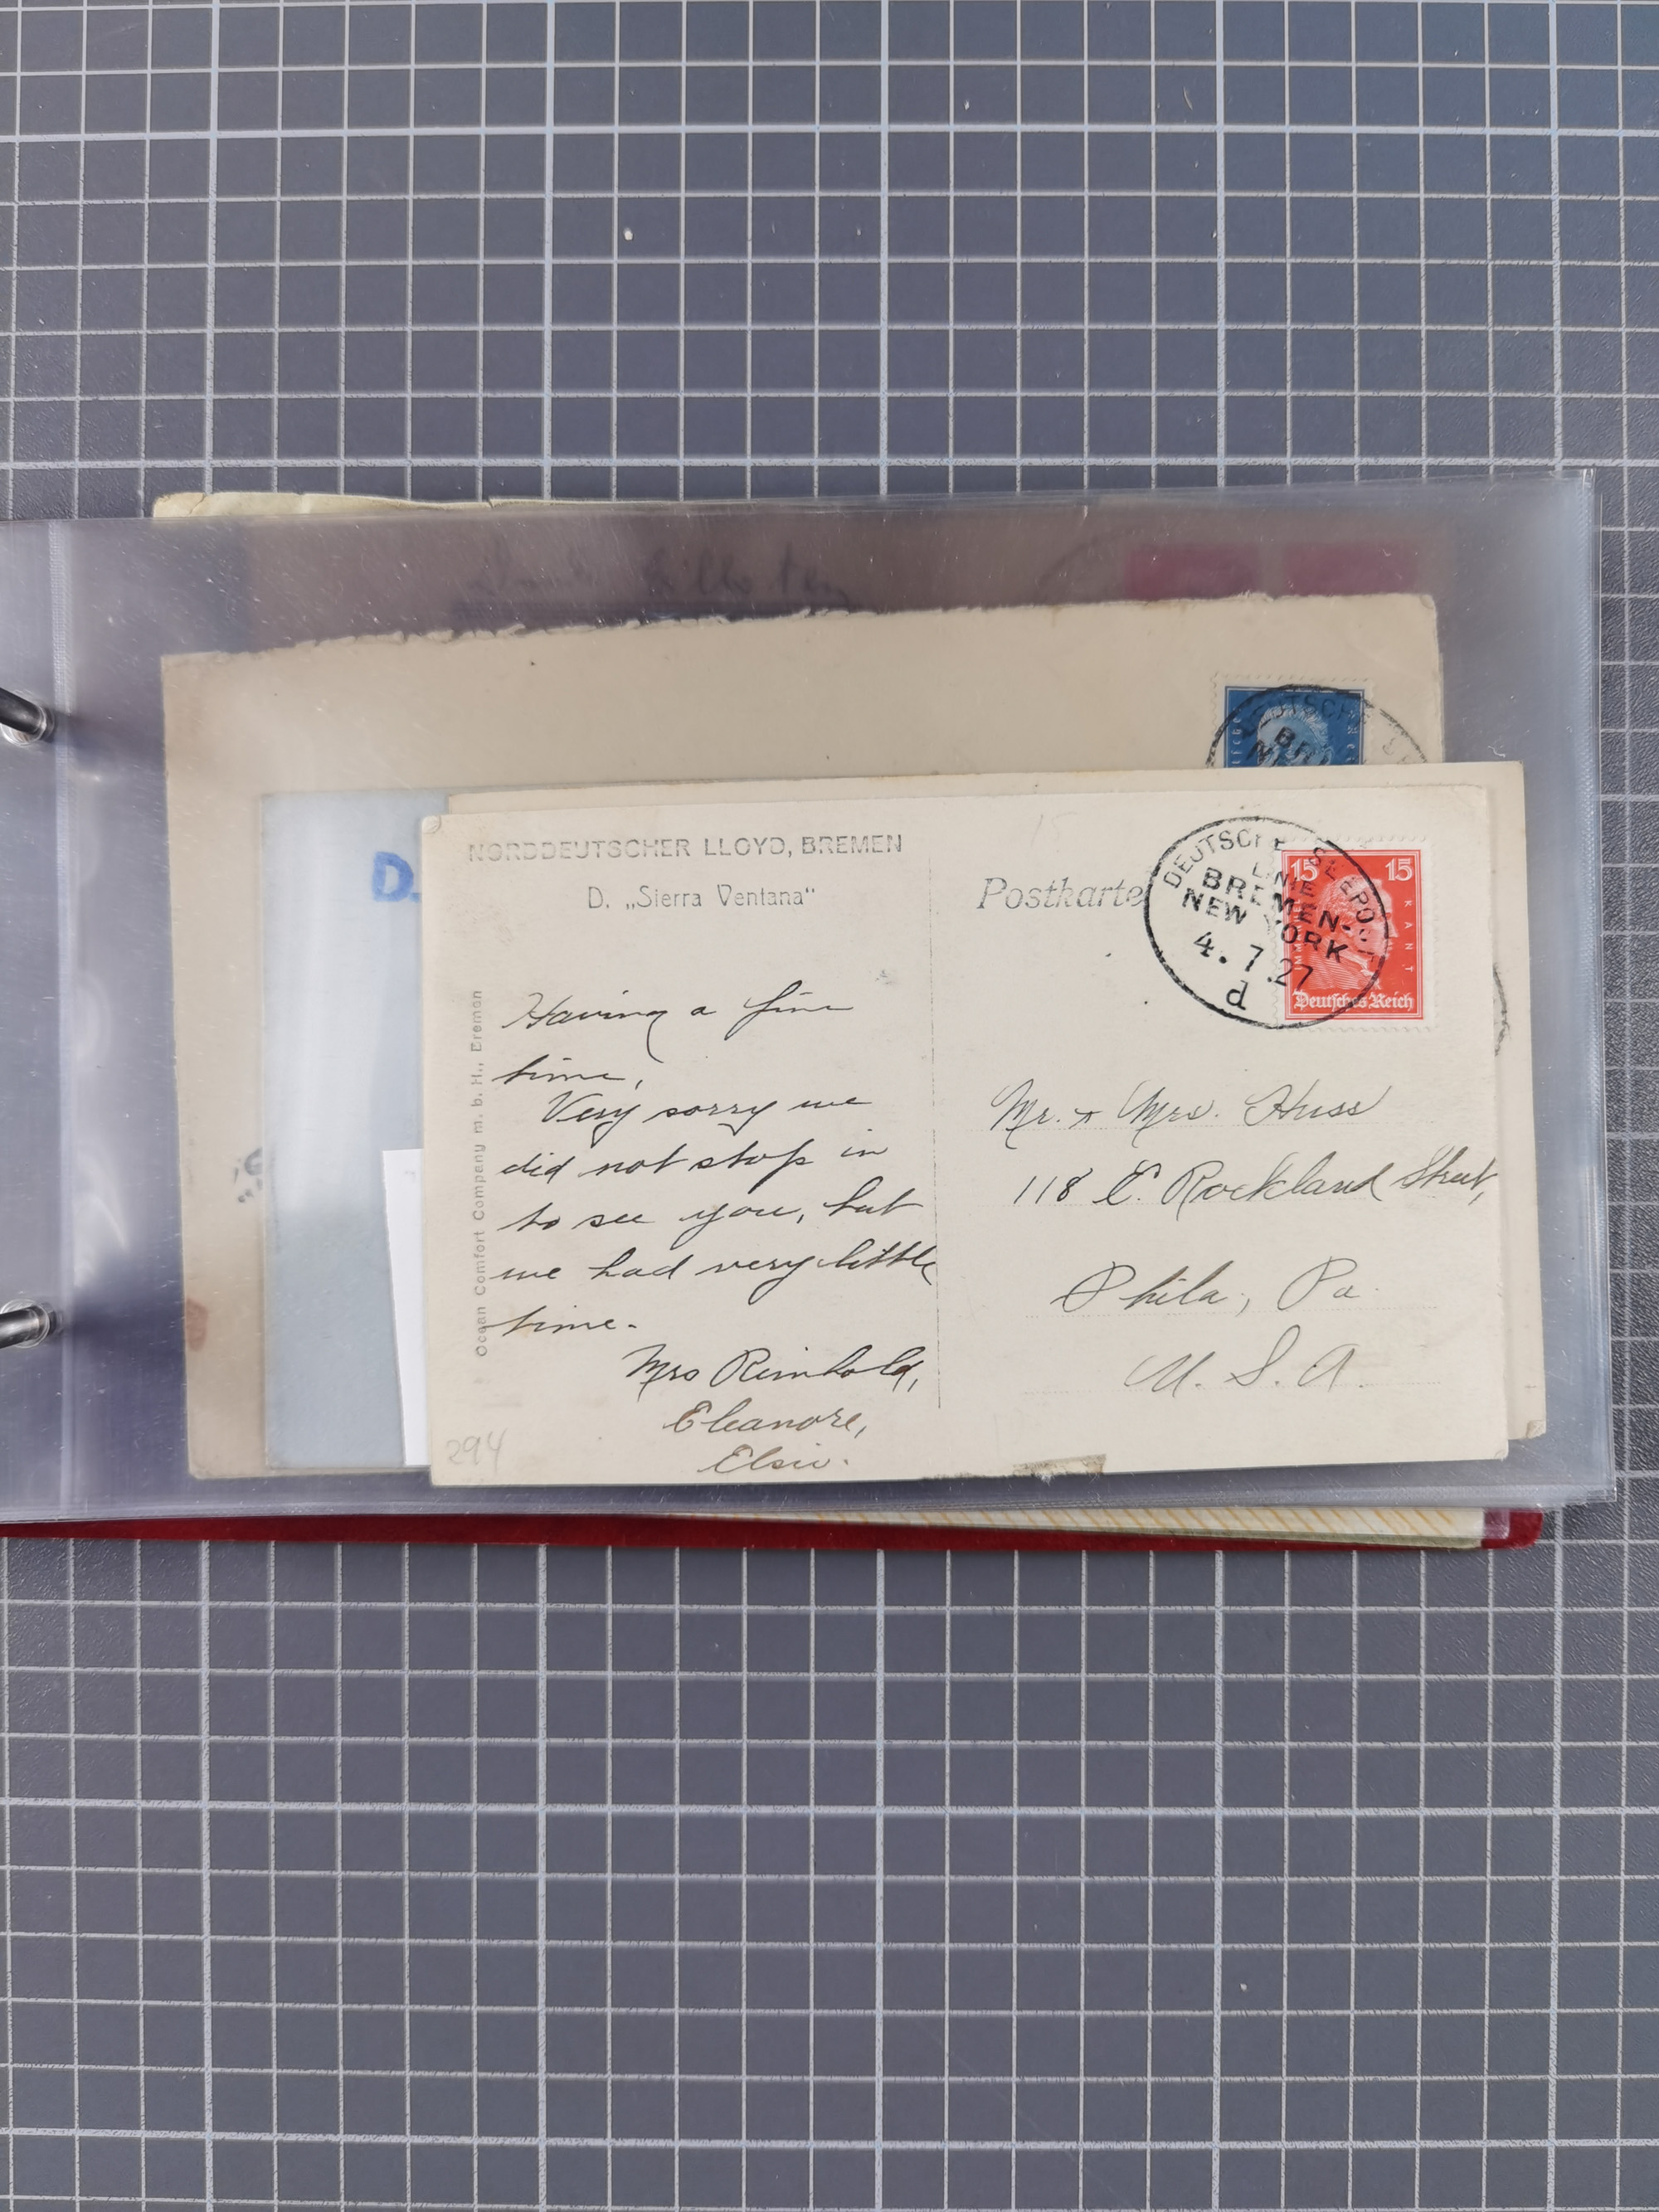 D.
NORDDEUTSCHER LLOYD, BREMEN
D. „Sierra Ventana“
Ocean Comfort Company m. b. H., Bremen
Having a fine
time,
Very sorry we
did not stop in
to see you, but
we had very little
time.
Mrs Reinhold,
Eleanore,
Elsie.
294
Postkarte
15
DEUTSCHE SEEPOST
LINIE
BREMEN-
NEW YORK
4. 7. 27
d
15 15
IMMANUEL KANT
Deutsches Reich
Mr. + Mrs. Huss
118 E. Rockland Street,
Phila, Pa.
U. S. A.